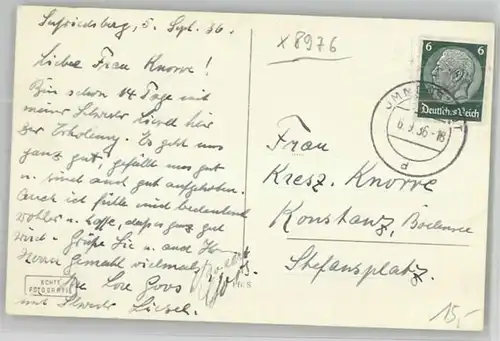 5. Sept. 36.
x 8976
Liebe Frau Knorre!
Bin schon 14 Tage mit
meiner Schwester Liesel hier
zur Erholung. Es geht uns
ganz gut, gefällt uns gut
u. sind auch gut aufgehoben.
Auch ich fühle mich bedeutend
wohler u. hoffe, daß es ganz gut
wird. Grüße Sie u. auch Ihren
Herrn Gemahl vielmals
Ihre Lore Goos
mit Schwester Liesel.
ECHTE
FOTOGRAFIE
6 6
Deutsches Reich
6.9.36-18
d
Frau
Kresz. Knorre
Konstanz, Bodensee
Stefansplatz.
15,-